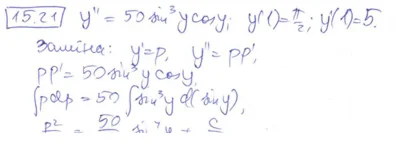 15.21 y'' = 50 sin³y cosy; y(1)=π/2; y'(1)=5.
Заміна: y'=p, y''=pp',
pp'=50sin³y cosy,
∫pdp = 50 ∫sin³y d(siny),
p² = 50 sin⁴y + C